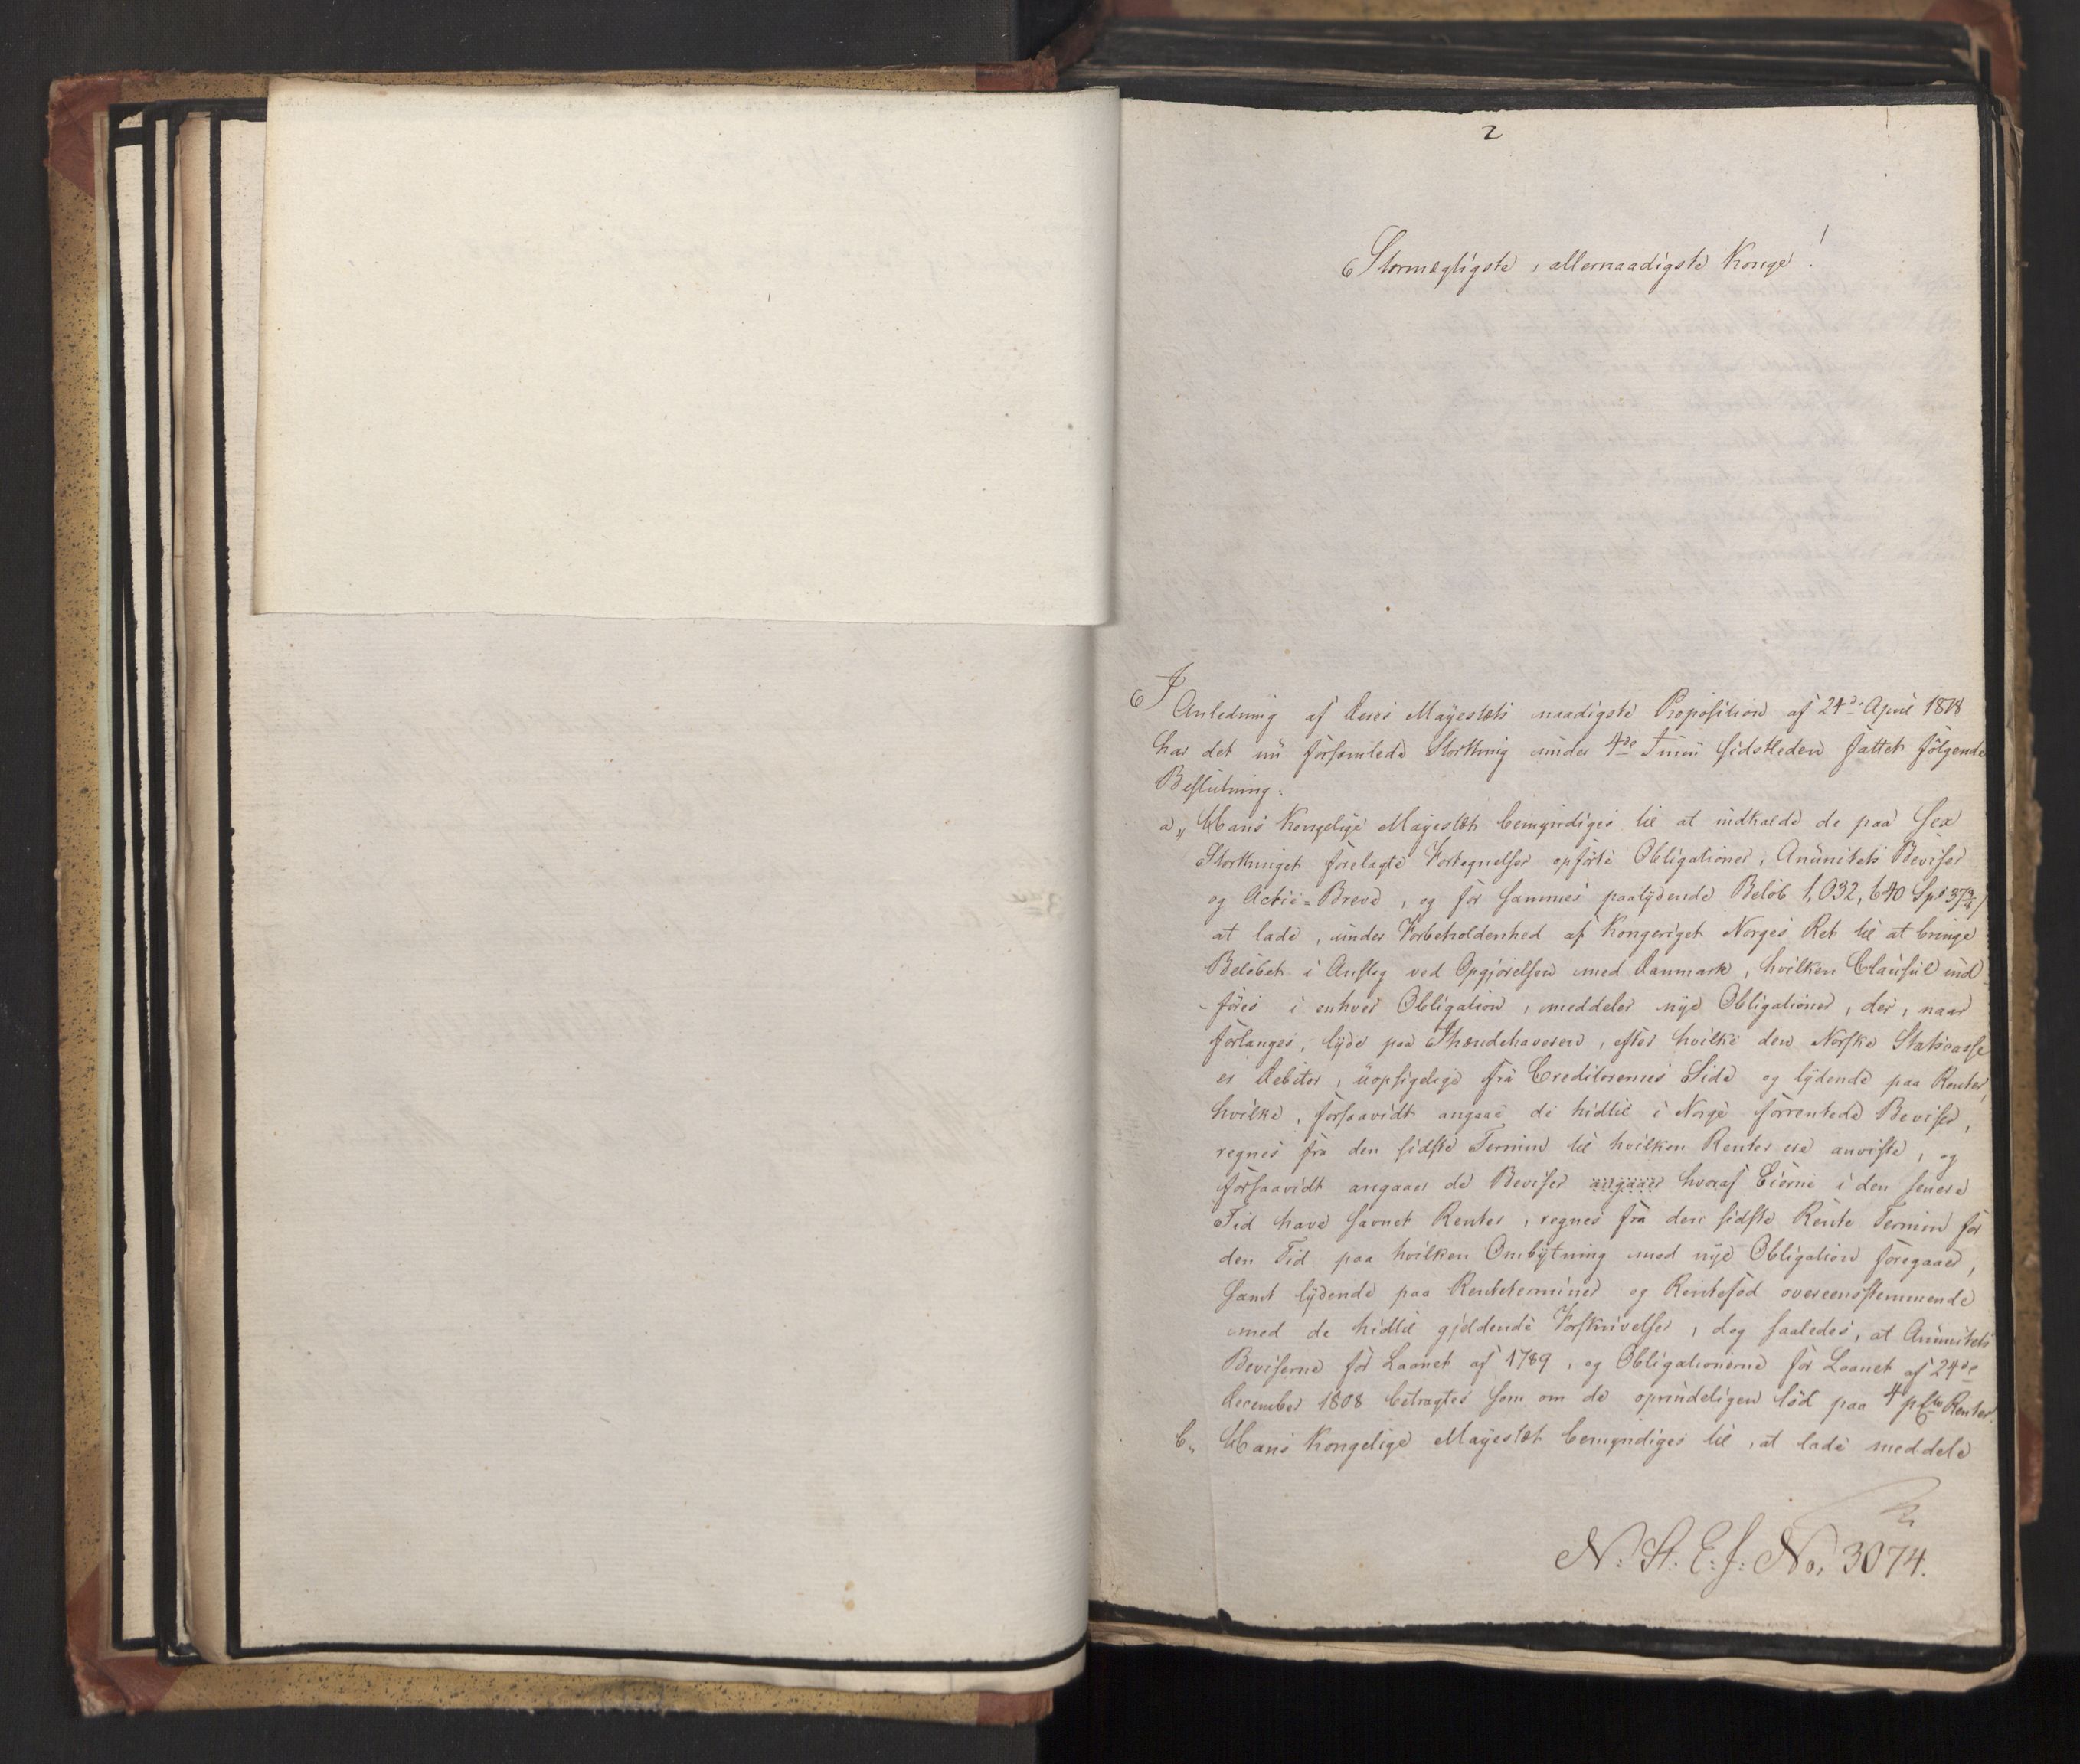 2
Stormægtigste, allernaadigste Konge!
I Anledning af Deres Mayestæts naadigste Proposition af 24de April 1818
har det nu forsamlede Storthing under 4de Junii sidstleden fattet følgende
Beslutning:
a, Hans Kongelige Mayestæt bemyndiges til at indkalde de paa sex
Storthinget forelagte Fortegnelser opførte Obligationer, Anuitets Beviser
og Actie-Breve, og for sammes paalydende Beløb 1,032,640 Spd
at lade, under Forbeholdenhed af Kongeriget Norges Ret til at bringe
Beløbet i Anslag ved Opgjørelsen med Danmark, hvilken Clausul ind-
-føres i enhver Obligation, meddeler nye Obligationer, der, naar
forlanges, lyde paa Ihændehaveren, efter hvilke den Norske Statscasse
er Debitor, uopsigelige fra Creditorernes Side og lydende paa Renter,
hvilke, forsaavidt angaae de hidtil i Norge forrentede Beviser,
regnes fra den sidste Termin til hvilken Renter ere anviste, og
forsaavidt angaaer de Beviser angaaer hvoraf Eierne i den senere
Tid have savnet Renter, regnes fra den sidste Rente Termin før
den Tid paa hvilken Ombytning med nye Obligation foregaaer,
samt lydende paa Renteterminer og Rentefod overeensstemmende
med de hidtil gjeldende Forskrivelser, dog saaledes, at Anuitets
Beviserne for Laanet af 1789, og Obligationerne for Laanet af 24de
December 1808 betragtes som om de oprindeligen lød paa 4 pCto Renter.
b, Hans Kongelige Mayestæt bemyndiges til, at lade meddele
N: St. E: f: No. 3074.